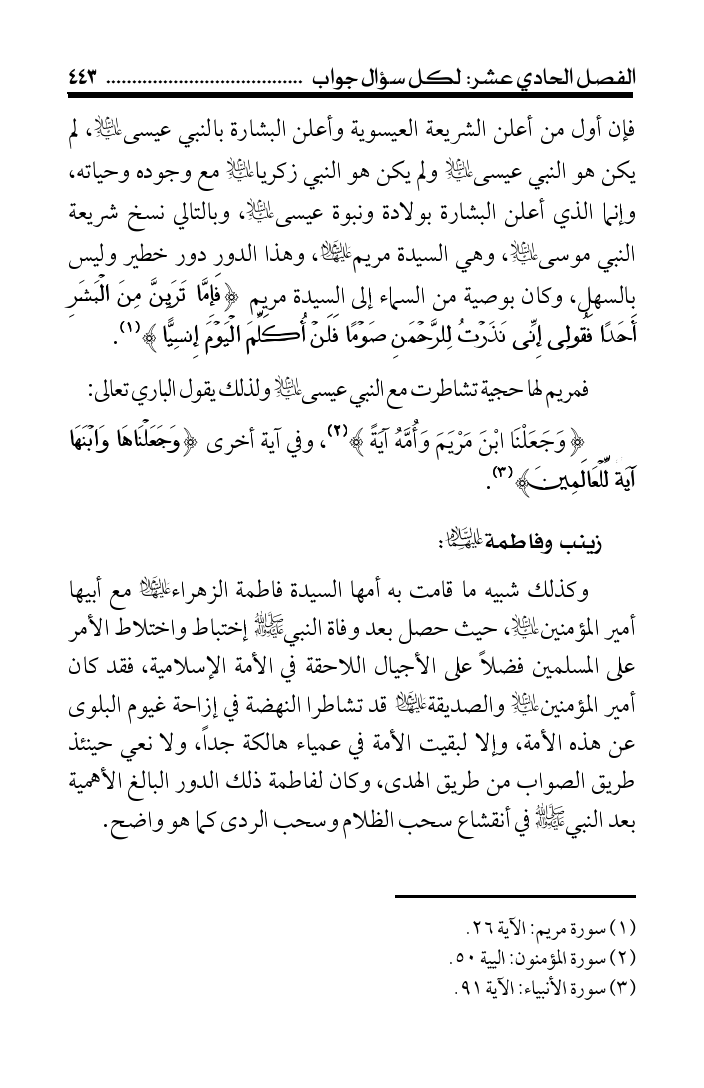 الفصل الحادي عشر: لكل سؤال جواب ...................................... ٤٤٣
فإن أول من أعلن الشريعة العيسوية وأعلن البشارة بالنبي عيسى عليه السلام، لم
يكن هو النبي عيسى عليه السلام ولم يكن هو النبي زكريا عليه السلام مع وجوده وحياته،
وإنما الذي أعلن البشارة بولادة ونبوة عيسى عليه السلام، وبالتالي نسخ شريعة
النبي موسى عليه السلام، وهي السيدة مريم عليها السلام، وهذا الدور دور خطير وليس
بالسهل، وكان بوصية من السماء إلى السيدة مريم ﴿فَإِمَّا تَرَيِنَّ مِنَ الْبَشَرِ
أَحَدًا فَقُولِي إِنِّي نَذَرْتُ لِلرَّحْمَنِ صَوْمًا فَلَنْ أُكَلِّمَ الْيَوْمَ إِنسِيًّا﴾(١).
فمريم لها حجية تشاطرت مع النبي عيسى عليه السلام ولذلك يقول الباري تعالى:
﴿وَجَعَلْنَا ابْنَ مَرْيَمَ وَأُمَّهُ آيَةً﴾(٢)، وفي آية أخرى ﴿وَجَعَلْنَاهَا وَابْنَهَا
آيَة لِّلْعَالَمِينَ﴾(٣).
زينب وفاطمة عليهما السلام:
وكذلك شبيه ما قامت به أمها السيدة فاطمة الزهراء عليها السلام مع أبيها
أمير المؤمنين عليه السلام، حيث حصل بعد وفاة النبي ﷺ إختباط واختلاط الأمر
على المسلمين فضلاً على الأجيال اللاحقة في الأمة الإسلامية، فقد كان
أمير المؤمنين عليه السلام والصديقة عليها السلام قد تشاطرا النهضة في إزاحة غيوم البلوى
عن هذه الأمة، وإلا لبقيت الأمة في عمياء هالكة جداً، ولا نعي حينئذ
طريق الصواب من طريق الهدى، وكان لفاطمة ذلك الدور البالغ الأهمية
بعد النبي ﷺ في أنقشاع سحب الظلام وسحب الردى كما هو واضح.
(١) سورة مريم: الآية ٢٦.
(٢) سورة المؤمنون: الیية ٥٠.
(٣) سورة الأنبياء: الآية ٩١.